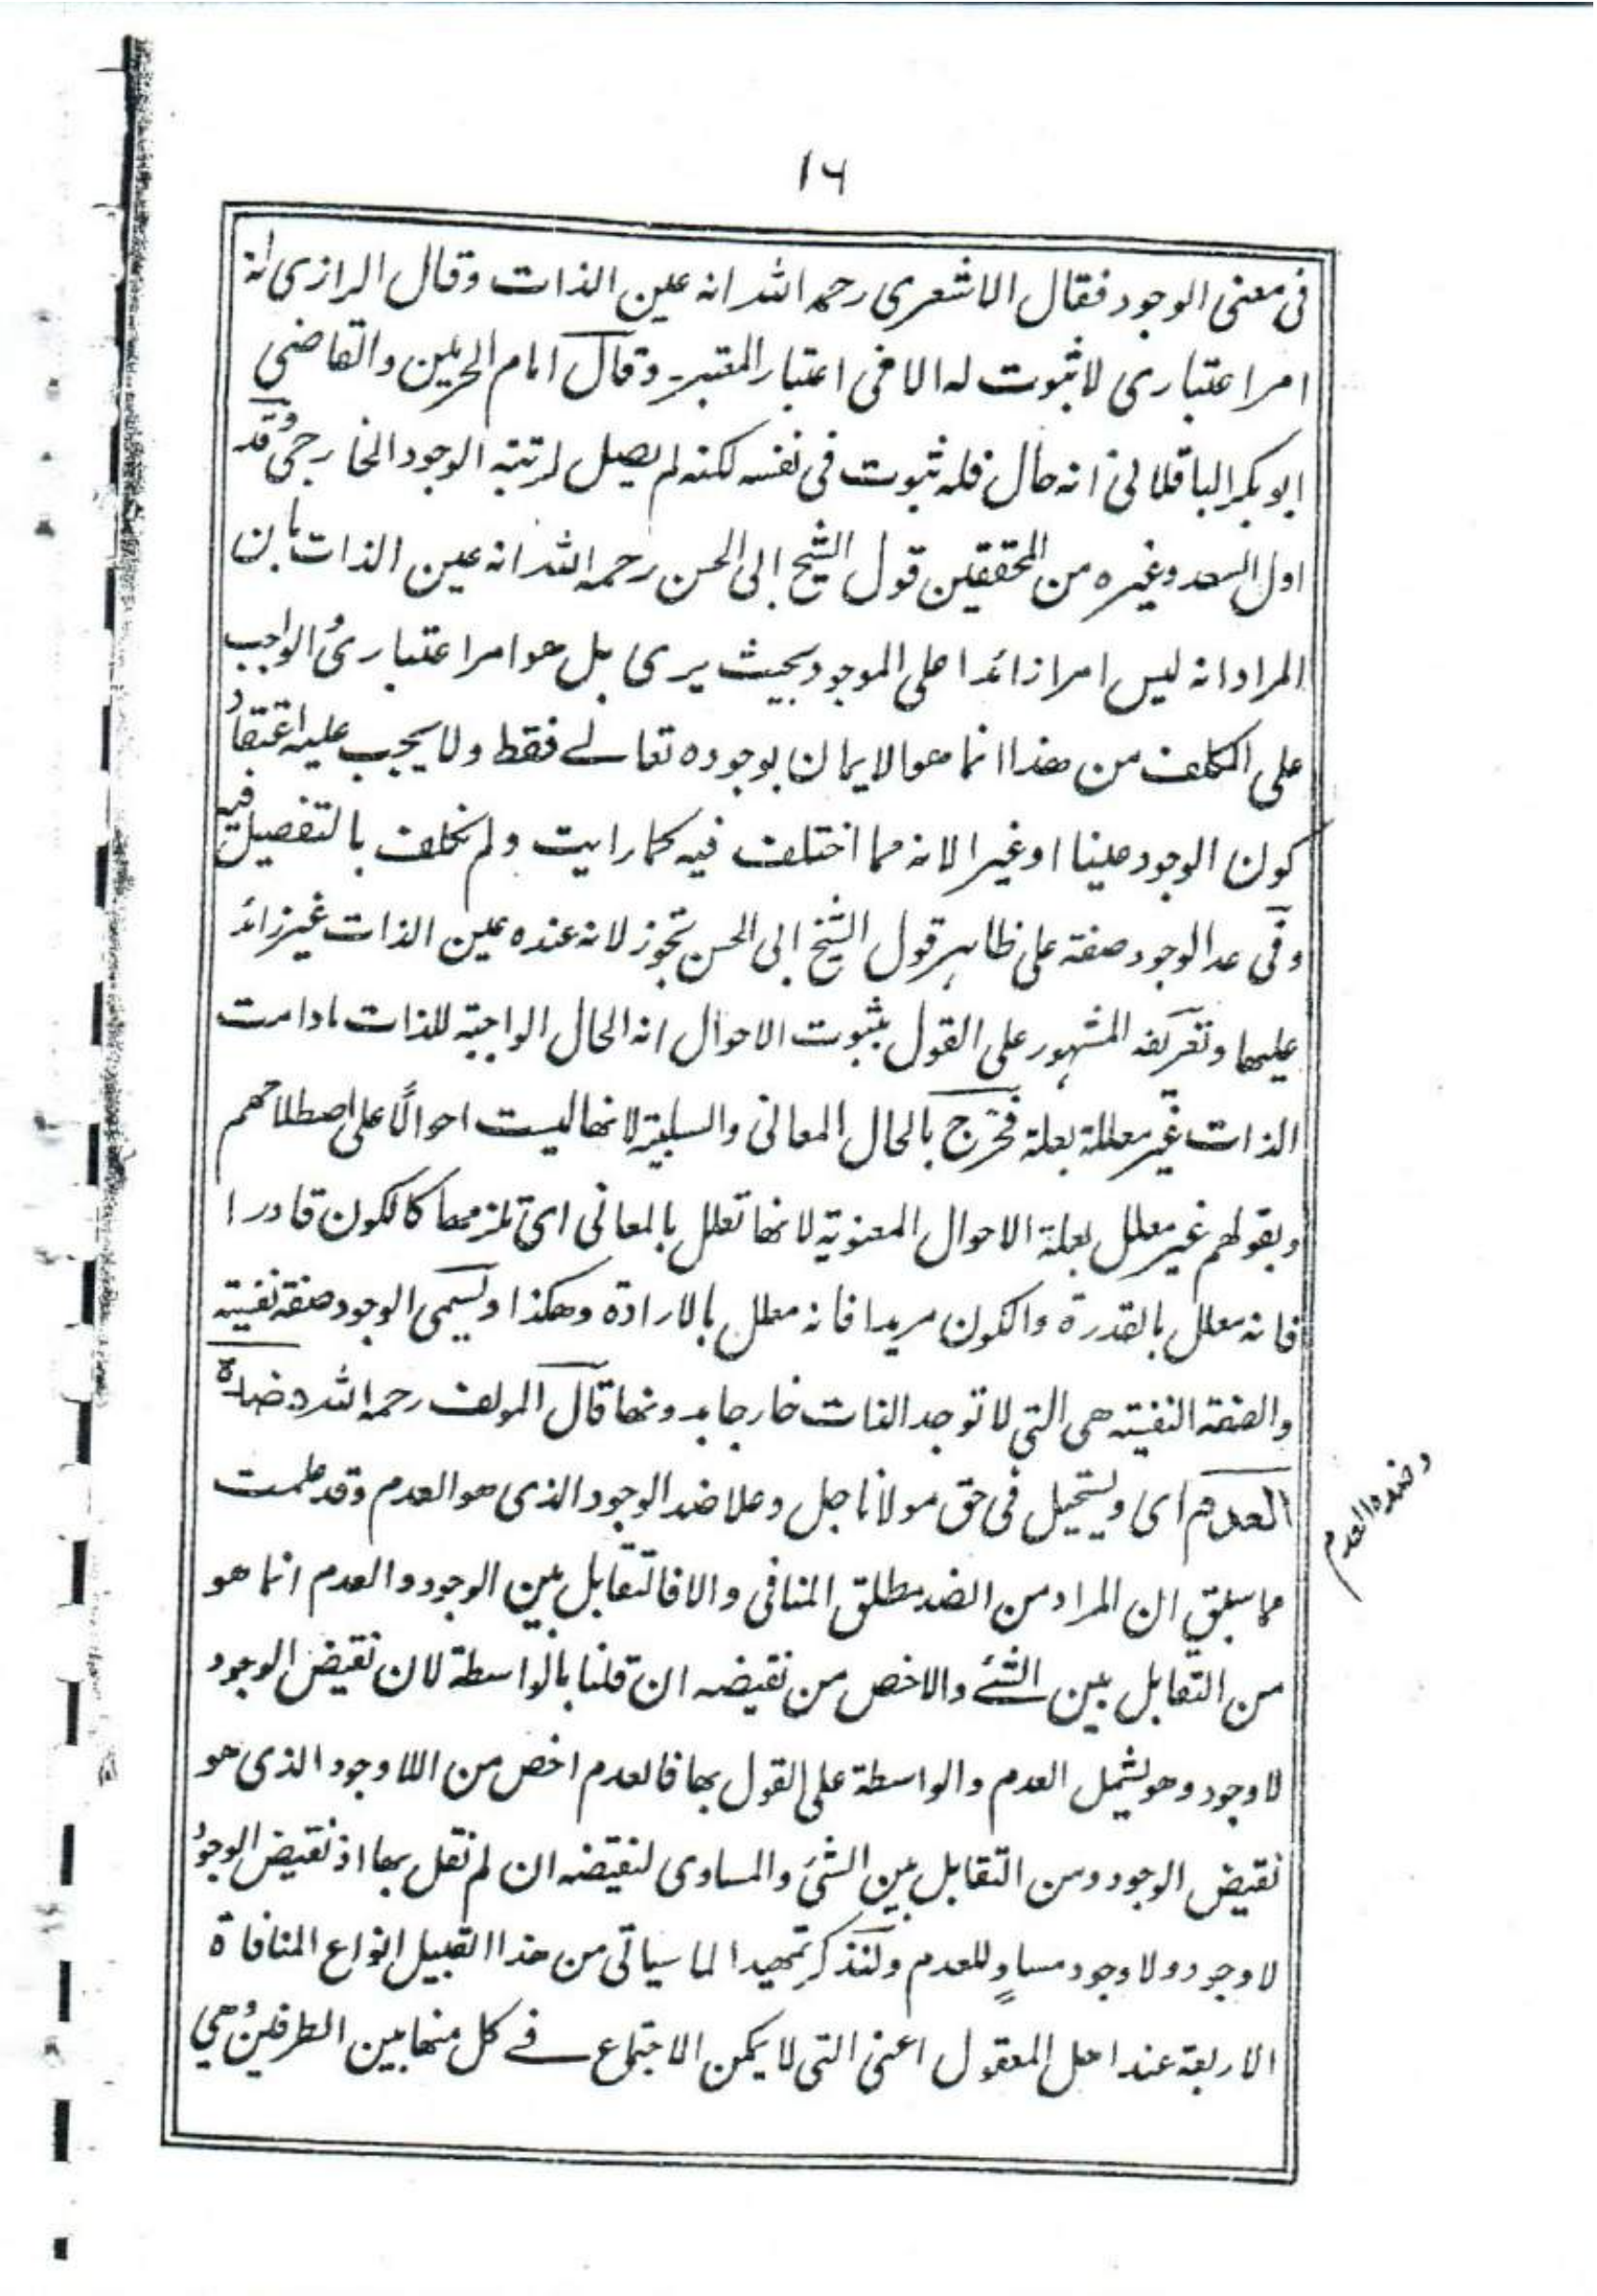 ١٦
فى معنى الوجود فقال الاشعرى رحمه الله انه عين الذات وقال الرازى انه
امر اعتبارى لا ثبوت له الا فى اعتبار المعتبر وقال امام الحرمين والقاضى
ابو بكر الباقلانى انه حال فله ثبوت فى نفسه لكنه لم يصل لمرتبة الوجود الخارجى وقد
اول السعد وغيره من المحققين قول الشيخ ابى الحسن رحمه الله انه عين الذات بان
المراد انه ليس امرا زائدا على الموجود بحيث يرى بل هو امر اعتبارى والواجب
على المكلف من هذا انما هو الايمان بوجوده تعالے فقط ولا يجب عليه اعتقاد
كون الوجود عينا او غيرا لانه مما اختلف فيه كما رايت ولم نكلف بالتفصيل فيه
وفى عد الوجود صفة على ظاهر قول الشيخ ابى الحسن تجوز لانه عنده عين الذات غير زائد
عليها وتعريفه المشهور على القول بثبوت الاحوال انه الحال الواجبة للذات مادامت
الذات غير معللة بعلة فخرج بالحال المعانى والسلبية لانها ليست احوالًا على اصطلاحهم
وبقولهم غير معلل بعلة الاحوال المعنوية لانها تعلل بالمعانى اى تلزمها كالكون قادرا
فانه معلل بالقدرة والكون مريدا فانه معلل بالارادة وهكذا ويسمى الوجود صفة نفسية
والصفة النفسية هى التى لا توجد الذات خارجا بدونها قال المولف رحمه الله وضده
العدم اى ويستحيل فى حق مولانا جل وعلا ضد الوجود الذى هو العدم وقد علمت
وضده العدم
مما سبق ان المراد من الضد مطلق المنافى والا فالتقابل بين الوجود والعدم انما هو
من التقابل بين الشئ والاخص من نقيضه ان قلنا بالواسطة لان نقيض الوجود
لا وجود وهو يشمل العدم والواسطة على القول بها فالعدم اخص من اللا وجود الذى هو
نقيض الوجود ومن التقابل بين الشئ والمساوى لنقيضه ان لم نقل بها اذ نقيض الوجود
لا وجود ولا وجود مساوٍ للعدم ولنذكر تمهيدا لما سياتى من هذا القبيل انواع المنافاة
الاربعة عند اهل المعقول اعنى التى لا يمكن الاجتماع فے كل منها بين الطرفين وهى